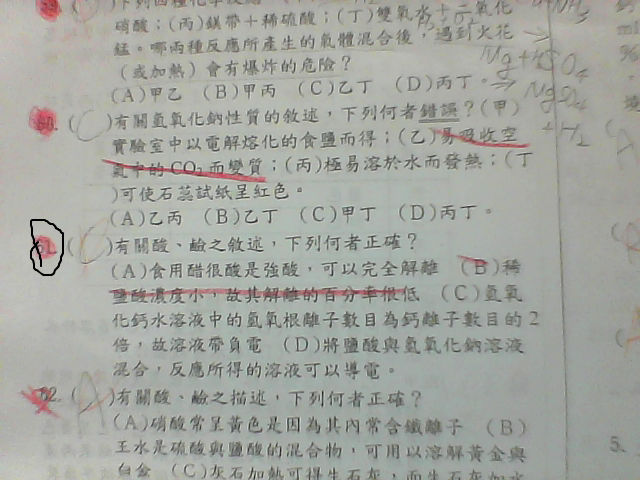 硝酸；(丙)鎂帶＋稀硫酸；(丁)雙氧水＋二氧化
錳。哪兩種反應所產生的氣體混合後，遇到火花
（或加熱）會有爆炸的危險？
(A)甲乙 (B)甲丙 (C)乙丁 (D)丙丁。
60. (C)有關氫氧化鈉性質的敘述，下列何者錯誤？(甲)
實驗室中以電解熔化的食鹽而得；(乙)易吸收空
氣中的CO₂而變質；(丙)極易溶於水而發熱；(丁
)可使石蕊試紙呈紅色。
(A)乙丙 (B)乙丁 (C)甲丁 (D)丙丁。
61. ( )有關酸、鹼之敘述，下列何者正確？
(A)食用醋很酸是強酸，可以完全解離 (B)稀
鹽酸濃度小，故其解離的百分率很低 (C)氫氧
化鈣水溶液中的氫氧根離子數目為鈣離子數目的2
倍，故溶液帶負電 (D)將鹽酸與氫氧化鈉溶液
混合，反應所得的溶液可以導電。
62. (A)有關酸、鹼之描述，下列何者正確？
(A)硝酸常呈黃色是因為其內常含鐵離子 (B)
王水是硫酸與鹽酸的混合物，可用以溶解黃金與
白金 (C)灰石加熱可得生石灰，而生石灰如水
5.